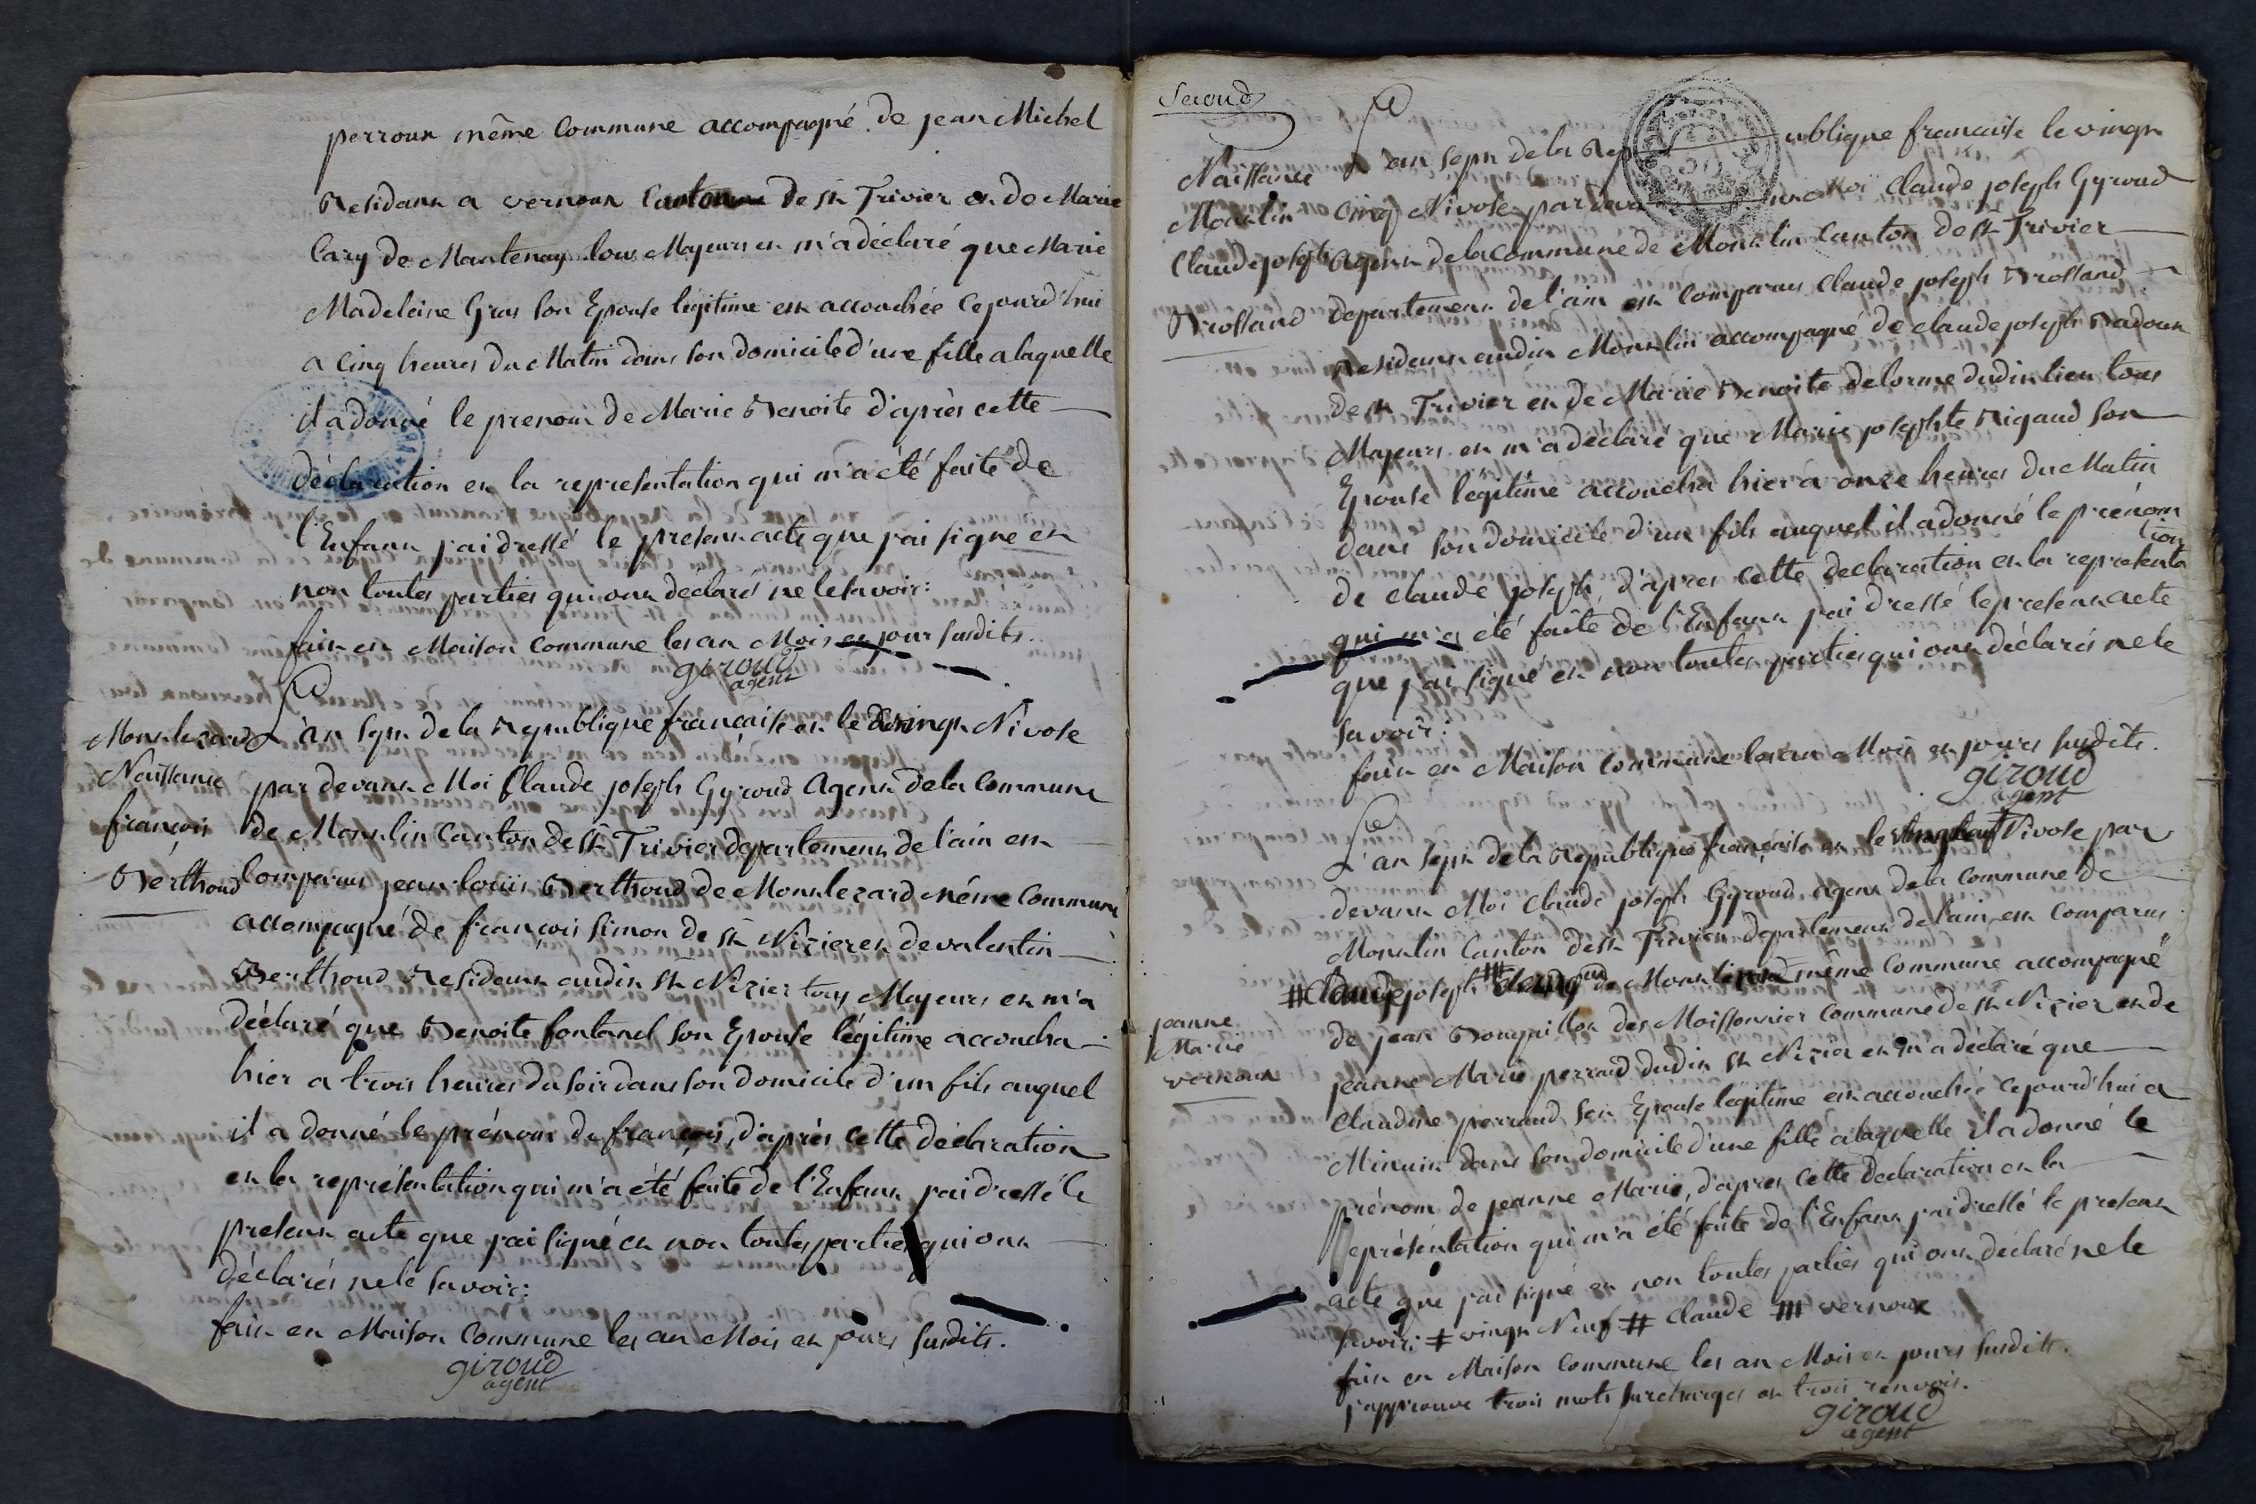 perroux même Commune accompagné de jean Michel
Residant a vernoux Canton de st Trivier et de Marie
Cary de Mantenay tous Majeurs et m'a déclaré que Marie
Madeleine Gras son Epouse légitime est accouchée Cejourd'hui
a Cinq heures du Matin dans son domicile d'une fille a laquelle
il a donné le prenom de Marie Benoite d'après cette
déclaration et la representation qui m'a été faite de
l'Enfant j'ai dressé le present acte que j'ai signé et
non toutes parties qui ont déclarés ne le savoir:
fait en Maison Commune les an Mois et jour susdits.
giroud
agent
L'an sept de la Republique française et le vingt Nivose
Montlezard
Naissance
françois
Berthoud
par devant Moi Claude joseph Gyroud Agent de la Commune
de Montlin Canton de st Trivier departement de l'ain est
Comparus jean louis Berthoud de Montlezard même Commune
accompagné de françois simon de st Nizier et de valentin
Berthoud Residant audit st Nizier tous Majeurs et m'a
déclaré que Benoite fontanel son Epouse légitime accoucha
hier a trois heures du soir dans son domicile d'un fils auquel
il a donné le prénom de françois, d'après cette déclaration
et la représentation qui m'a été faite de l'Enfant j'ai dressé le
present acte que j'ai signé et non toutes parties qui ont
déclarés ne le savoir:
fait en Maison Commune les an Mois et jours susdits.
giroud
agent
Second
Naissance
Montlin
Claude joseph
Brossand
L'an sept de la Republique francaise le vingt
Cinq Nivose par devant Moi Claude joseph Gyroud
Agent de la Commune de Montlin Canton de st Trivier
departement de l'ain est Comparus Claude joseph Brossand
Residant audit Montlin accompagné de Claude joseph Badoux
de st Trivier et de Marie Benoite delorme dudit lieu tous
Majeurs et m'a déclaré que Marie josephte Rigaud son
Epouse légitime accoucha hier a onze heures du Matin
dans son domicile d'un fils auquel il a donné le prénom
de Claude joseph, d'après cette declaration et la representation
qui m'a été faite de l'Enfant j'ai dressé le present acte
que j'ai signé et non toutes parties qui ont déclarés ne le
savoir:
fait en Maison Commune les an Mois et jours susdits.
giroud
agent
L'an sept de la Republique française et le Nivose par
devant Moi Claude joseph Gyroud agent de la Commune de
Montlin Canton de st Trivier departement de l'ain est Comparus
# Claude joseph de même Commune accompagné
jeanne
Marie
vernoux
de jean des Moissonnier Commune de st Nizier et de
jeanne Marie perraud dudit st Nizier et m'a déclaré que
Claudine perraud son Epouse légitime est accouchée Cejourd'hui a
Minuit dans son domicile d'une fille a laquelle il a donné le
prénom de jeanne Marie, d'après cette declaration et la
représentation qui m'a été faite de l'Enfant j'ai dressé le present
acte que j'ai signé et non toutes parties qui ont déclaré ne le
savoir: ‡ vingt Neuf # Claude vernoux
fait en Maison Commune les an Mois et jours susdits.
j'approuve trois mots surchargés et trois renvois.
giroud
agent